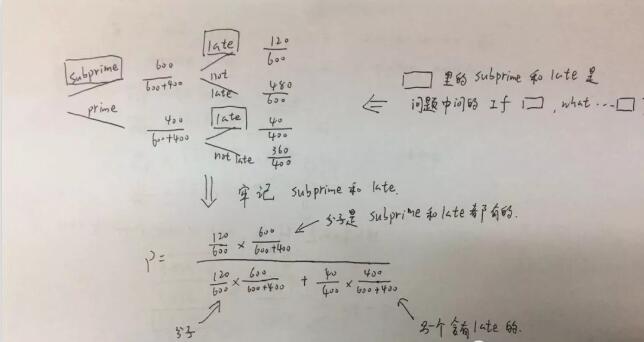 late 120/600
subprime 600/(600+400)
not late 480/600
prime 400/(600+400)
late 40/400
not late 360/400
□里的 subprime 和 late 是
问题中问的 If □, what ... □ ?
牢记 subprime 和 late.
分子是 subprime 和 late 都有的.
P = (120/600 × 600/(600+400)) / (120/600 × 600/(600+400) + 40/400 × 400/(600+400))
分子
另一个含有 late 的.